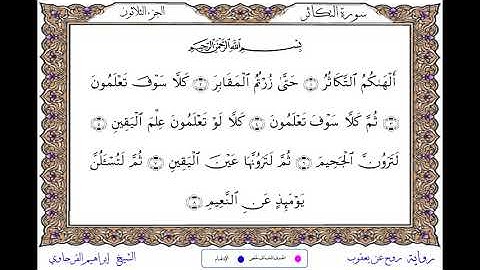 سورة التكاثر
الجزء الثلاثون
بِسْمِ اللَّهِ الرَّحْمَٰنِ الرَّحِيمِ
أَلْهَىٰكُمُ التَّكَاثُرُ ١ حَتَّىٰ زُرْتُمُ الْمَقَابِرَ ٢ كَلَّا سَوْفَ تَعْلَمُونَ
٣ ثُمَّ كَلَّا سَوْفَ تَعْلَمُونَ ٤ كَلَّا لَوْ تَعْلَمُونَ عِلْمَ الْيَقِينِ ٥
لَتَرَوُنَّ الْجَحِيمَ ٦ ثُمَّ لَتَرَوُنَّهَا عَيْنَ الْيَقِينِ ٧ ثُمَّ لَتُسْـَٔلُنَّ
يَوْمَئِذٍ عَنِ النَّعِيمِ ٨
رواية روح عن يعقوب
الشيخ إبراهيم الفرجاوي